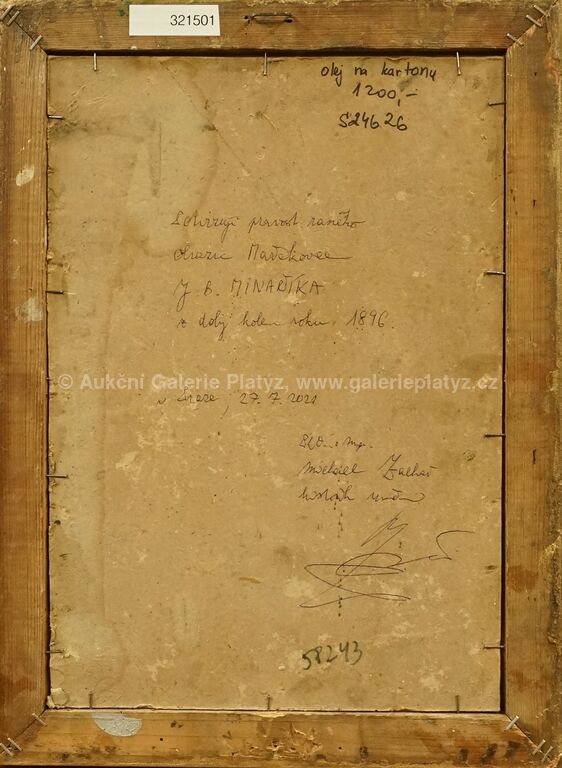 321501
olej na kartonu
1200,-
S24626
Potvrzuji pravost raného
obrazu
J. B. MINAŘÍKA
z doby kolem roku 1896.
© Aukční Galerie Platýz, www.galerieplatyz.cz
v Praze, 27. 7. 2021
PhDr. mgr.
Michael Zachař
historik umění
58243